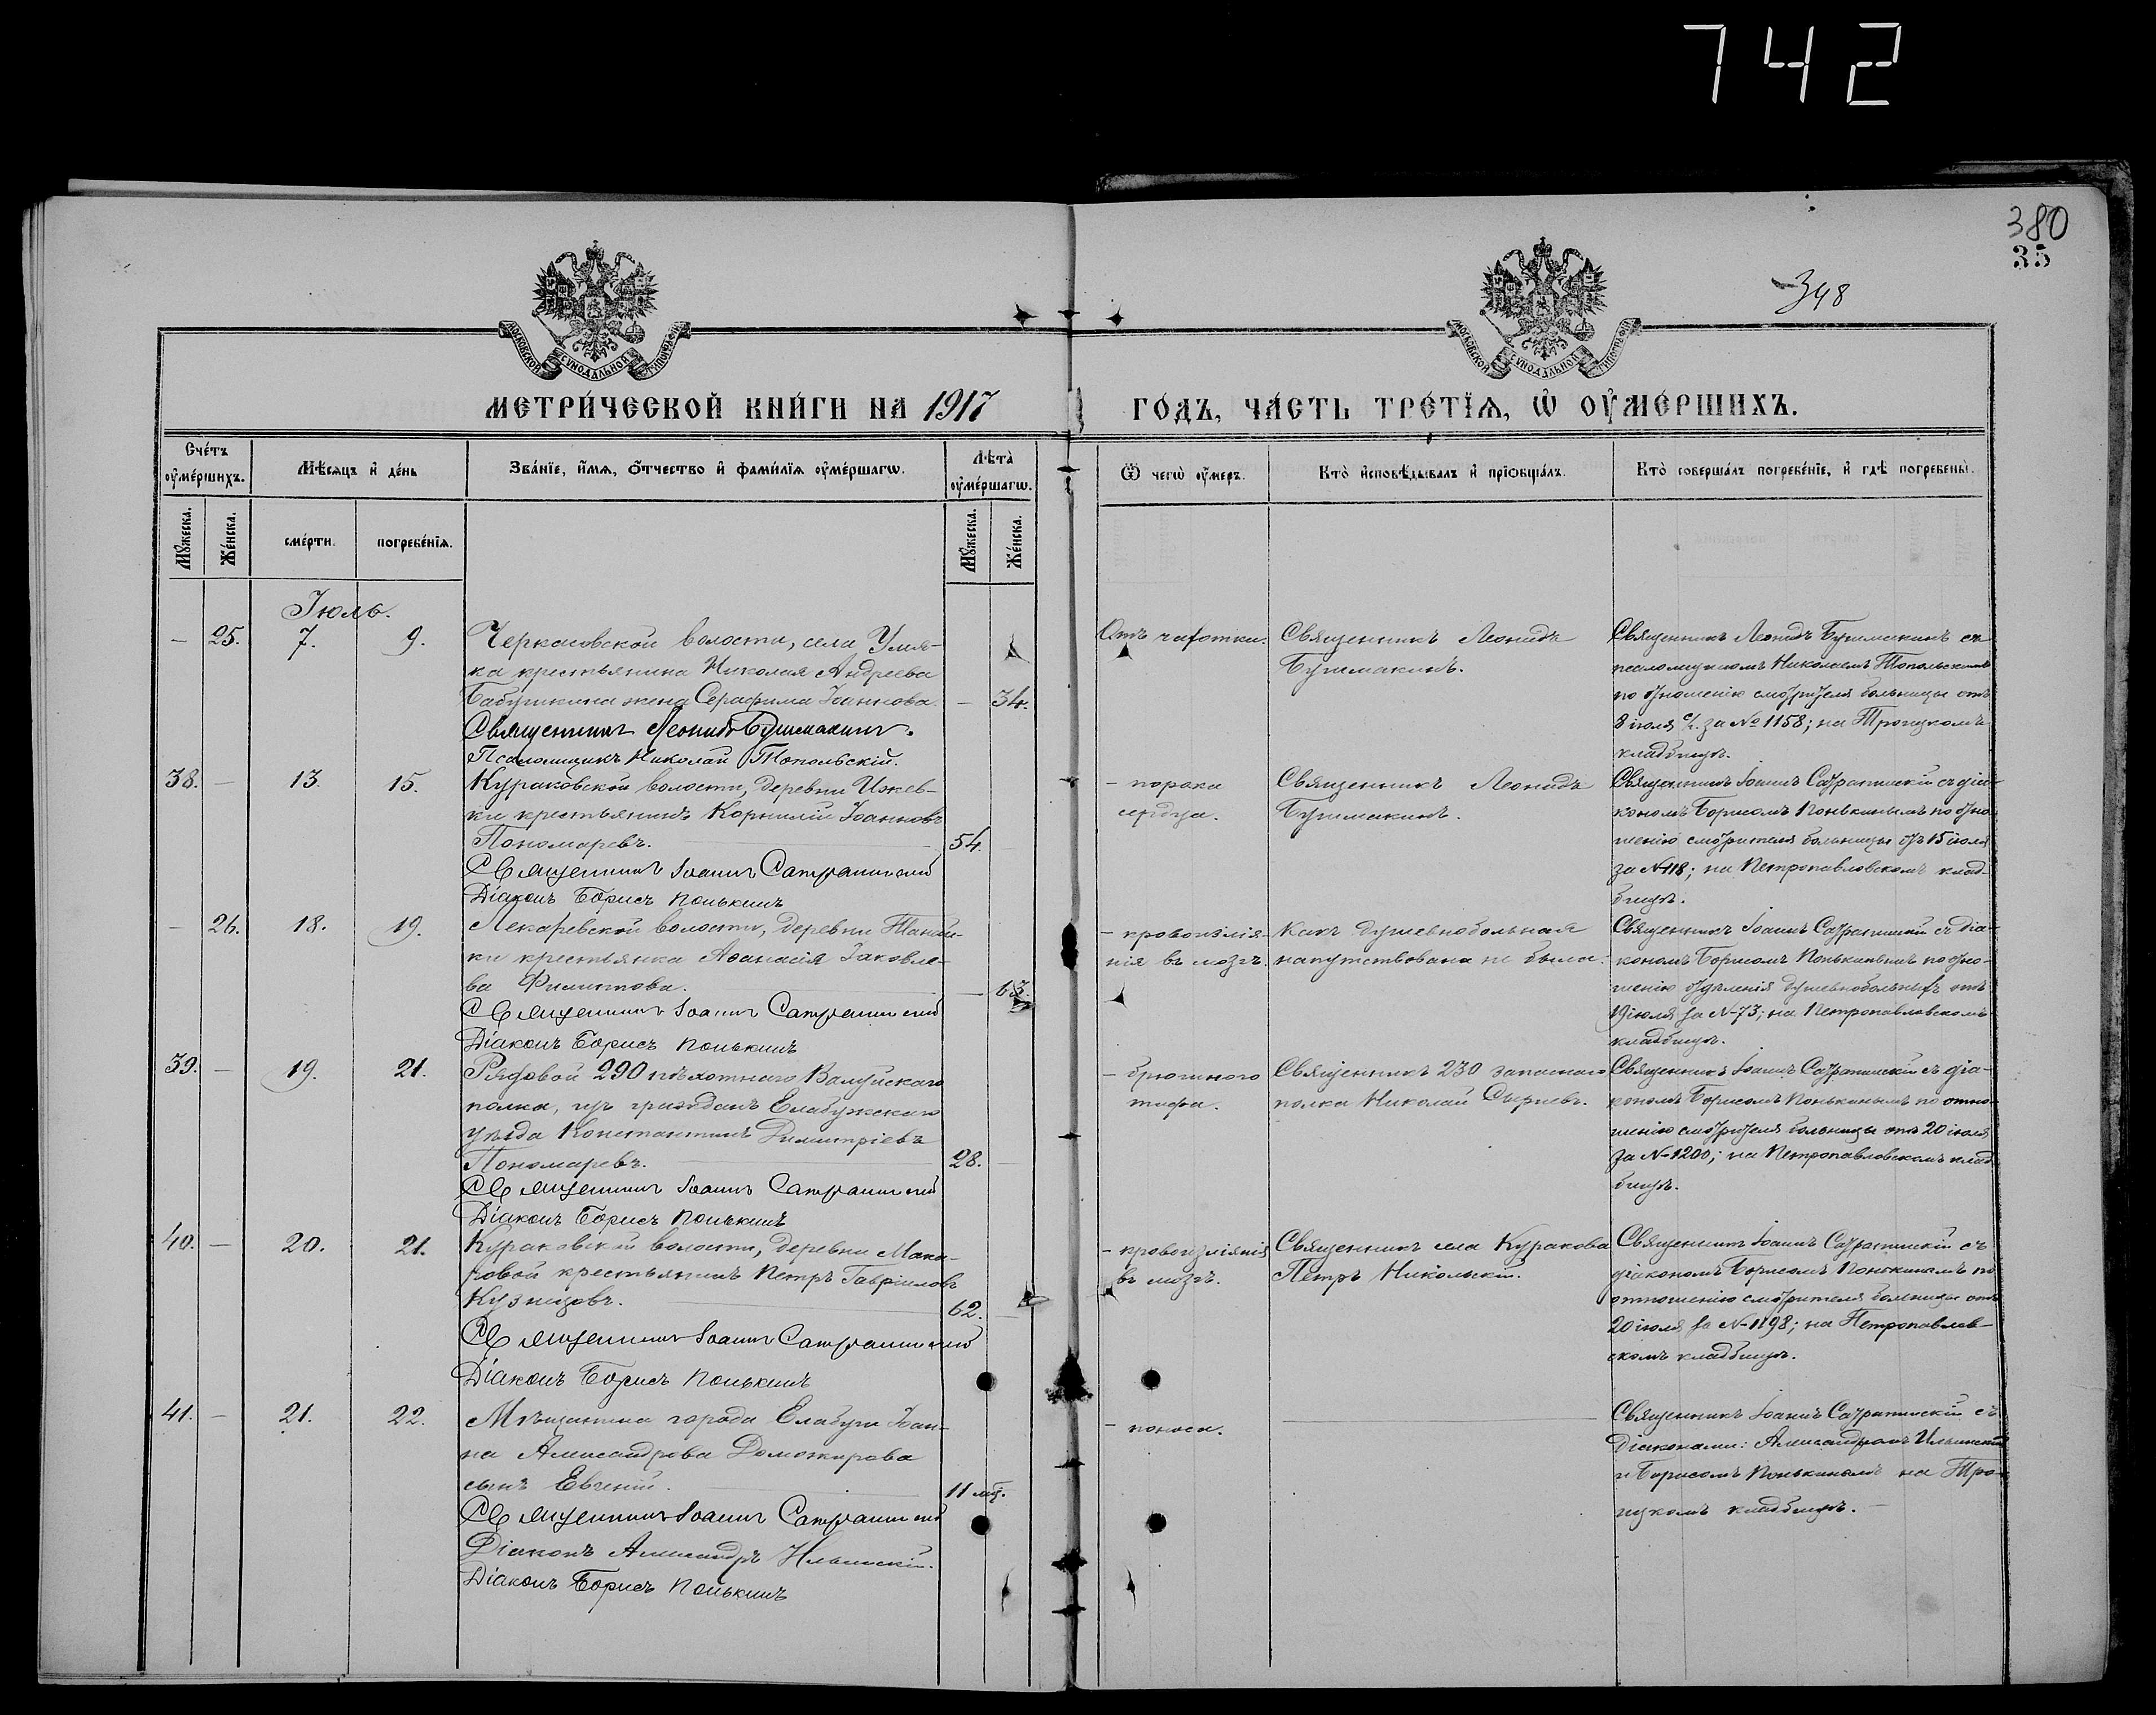 742
380
35
348
МОСКОВСКОЙ СѴНОДАЛЬНОЙ ТИПОГРАФІИ
МОСКОВСКОЙ СѴНОДАЛЬНОЙ ТИПОГРАФІИ
МЕТРИ́ЧЕСКОЙ КНИ́ГИ НА 1917 ГО́ДЪ, ЧА́СТЬ ТРЕ́ТЇѦ, Ѡ҆ ОУ҆МЕ́РШИХЪ.
Сче́тъ оу҆ме́ршихъ.
Мѣ́сѧцъ и҆ де́нь
Зва́нїе, и҆́мѧ, ѻ҆́тчество и҆ фами́лїѧ оу҆ме́ршагѡ.
Лѣ́та оу҆ме́ршагѡ.
Ѿ чегѡ̀ оу҆́меръ.
Кто̀ и҆сповѣ́дывалъ и҆ прїѡбща́лъ.
Кто̀ соверша́лъ погребе́нїе, и҆ гдѣ̀ погребены̀.
Мꙋ́жеска.
Же́нска.
сме́рти.
погребе́нїѧ.
Мꙋ́жеска.
Же́нска.
Іюль.
— 25. 7. 9.
Черкасовской волости, села Умя-
ка крестьянина Николая Андреева
Бабушкина жена Серафима Іоаннова. — 34.
Священникъ Леонидъ Бушмакинъ.
Псаломщикъ Николай Топольскій.
Отъ чахотки.
Священникъ Леонидъ
Бушмакинъ.
Священникъ Леонидъ Бушмакинъ съ
псаломщикомъ Николаемъ Топольскимъ
по отношенію смотрителя больницы отъ
8 іюля с/г. за № 1158; на Троицкомъ
кладбищѣ.
38. — 13. 15.
Кураковской волости, деревни Ижев-
ки крестьянинъ Корнилій Іоанновъ
Пономаревъ. 54.
Священникъ Іоаннъ
Діаконъ Борисъ Понькинъ
— порока
сердца.
Священникъ Леонидъ
Бушмакинъ.
Священникъ Іоаннъ съ діа-
кономъ Борисомъ Понькинымъ по отно-
шенію смотрителя больницы отъ 15 іюля
за № 118; на Петропавловскомъ клад-
бищѣ.
— 26. 18. 19.
Лекаревской волости, деревни Танай-
ки крестьянка Аѳанасія Іаковле-
ва Филиппова. — 63.
Священникъ Іоаннъ
Діаконъ Борисъ Понькинъ
— кровоизлія-
нія въ мозгъ.
Какъ душевнобольная
напутствована не была.
Священникъ Іоаннъ съ діа-
кономъ Борисомъ Понькинымъ по отно-
шенію отдѣленія душевнобольныхъ отъ
19 іюля за № 73; на Петропавловскомъ
кладбищѣ.
39. — 19. 21.
Рядовой 290 пѣхотнаго Валуйскаго
полка, изъ гражданъ Елабужскаго
уѣзда Константинъ Димитріевъ
Пономаревъ. 28. —
Священникъ Іоаннъ
Діаконъ Борисъ Понькинъ
— брюшного
тифа.
Священникъ 230 запаснаго
полка Николай
Священникъ Іоаннъ съ діа-
кономъ Борисомъ Понькинымъ по отно-
шенію смотрителя больницы отъ 20 іюля
за № 1200; на Петропавловскомъ клад-
бищѣ.
40. — 20. 21.
Кураковской волости, деревни Мака-
ровой крестьянинъ Петръ Гавріиловъ
Кузнецовъ. 62. —
Священникъ Іоаннъ
Діаконъ Борисъ Понькинъ
— кровоизліянія
въ мозгъ.
Священникъ села Куракова
Петръ Никольскій.
Священникъ Іоаннъ съ
діакономъ Борисомъ Понькинымъ по
отношенію смотрителя больницы отъ
20 іюля за № 1198; на Петропавлов-
скомъ кладбищѣ.
41. — 21. 22.
Мѣщанина города Елабуги Іоан-
на Александрова Доможирова
сынъ Евгеній. 11 мц.
Священникъ Іоаннъ
Діаконъ Александръ Ильинскій.
Діаконъ Борисъ Понькинъ
— поноса.
Священникъ Іоаннъ съ
Діаконами: Александромъ Ильинскимъ
и Борисомъ Понькинымъ на Трои-
цкомъ кладбищѣ. —